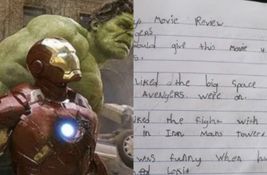 Movie Review
give this movie
liked the big space
AVENGERS. were on.
liked the fight with
in Iron Mans tower
was funny when